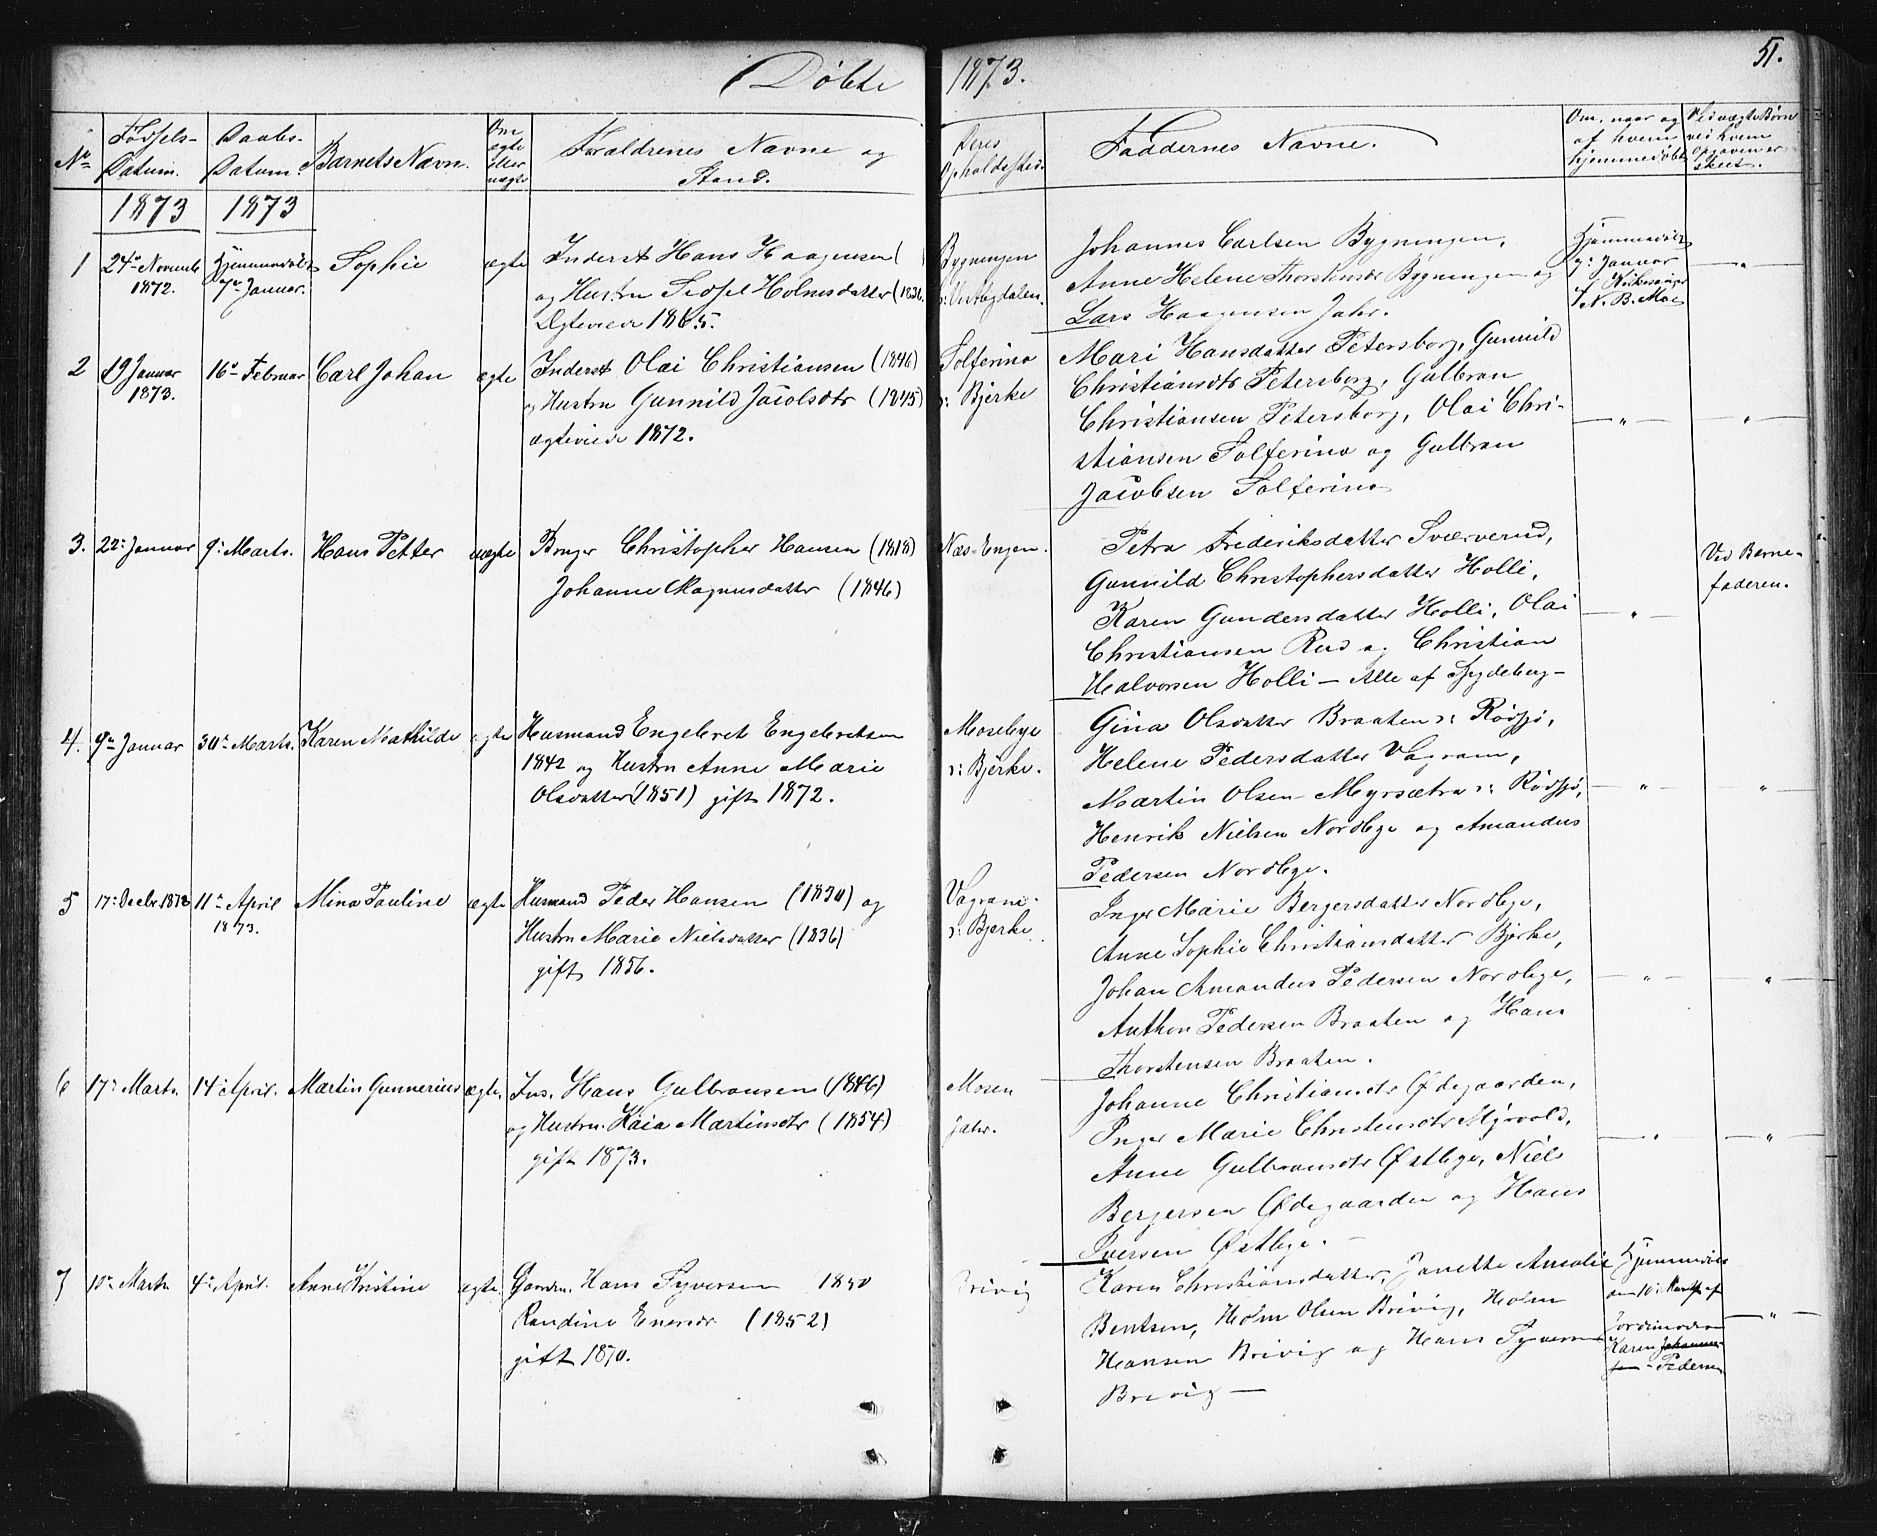 Døbte 1873.
51.
No
Fødsels-
Datum.
Daabs-
Datum.
Barnets Navn.
Om
ægte
eller
uægte
Foraldrenes Navne og
Stand.
Deres
Opholdssted.
Faddernes Navne.
Om, naar og
af hvem
hjemmedøbt
Ved uægte Børn
ved hvem
Opgaven er
skeet.
1873 1873
1
24de Novemb
1872.
Hjemmedøbt
7de Januar.
Sophie
ægte
Inderst Hans Haagensen (
og Hustru Sidsel Holmsdatter (1836
Ægteviede 1865.
Bygningen
Johannes Carlsen Bygningen,
Anne Helene Thorstensdr Bygningen og
Lars Haagensen Jahr.
Hjemmedøbt
7de Januar
af Kirkesanger
N. B. Moe
2
19 Januar
1873.
16de Februar
Carl Johan
ægte
Inderst Olai Christiansen (1846)
og Hustru Gunnild Jacobsdtr (1845)
ægteviede 1872.
Solferino
s: Bjerke
Mari Hansdatter Petersborg, Gunnild
Christiansdtr Petersborg, Gulbran
Christiansen Petersborg, Olai Chri-
stiansen Solferino og Gulbran
Jacobsen Solferino
3.
22de Januar
9de Marts.
Hans Petter
uægte
Bruger Christopher Hansen (1818)
Johanne Magnusdatter (1846)
Næs-Engen.
Petra Frederiksdatter Sværverud,
Gunnild Christophersdatter Holli,
Karen Gundersdatter Holli, Olai
Christiansen Rud og Christian
Halvorsen Holli — Alle af Spydeberg —
Ved Barne-
faderen.
4.
9de Januar
30te Marts.
Karen Mathilde
ægte
Husmand Engebret Engebretsen
1842 og Hustru Anne Marie
Olsdatter (1851) gift 1872.
Mosebye
s: Bjerke.
Gina Olsdatter Braaten s: Rødsjø,
Helene Pedersdatter Vagram,
Martin Olsen Myrsætra s: Rødsjø,
Henrik Nielsen Nordbye og Amandus
Pedersen Nordbye.
5
17de Decbr 1872
11te April
1873.
Mina Pauline
ægte
Husmand Peder Hansen (1830) og
Hustru Marie Nielsdatter (1836)
gift 1856.
Vagram
s: Bjerke
Inger Marie Bergersdatter Nordbye,
Anne Sophie Christiansdatter Bjerke,
Johan Amandus Pedersen Nordbye,
Anthon Pedersen Braaten og Hans
Thorstensen Braaten.
6
17de Marts.
14de April.
Martin Gunnerius
ægte.
Ins. Hans Gulbransen (1846)
og Hustru Kaia Martinsdtr (1854)
gift 1873.
Mosen
Jahr.
Johanne Christiansdtr Ødegaarden,
Inger Marie Christensdtr Myrvold,
Anne Gulbransdtr Østbye, Niels
Bergersen Ødegaarden og Hans
Iversen Østbye. —
7
10de Marts
4de April.
Anne Kristine
ægte
Gaardm. Hans Syversen 1850
Randine Enersdr (1852)
gift 1870.
Brevig
Karen Christiansdatter, Janette Amalie
Bentsen, Holm Olsen Brevig, Holm
Hansen Brevig og Hans Syversen
Brevig —
Hjemmedøbt
den 10de Marts af
Jordmoderen
Karen Johannes-
sen - Pedersen